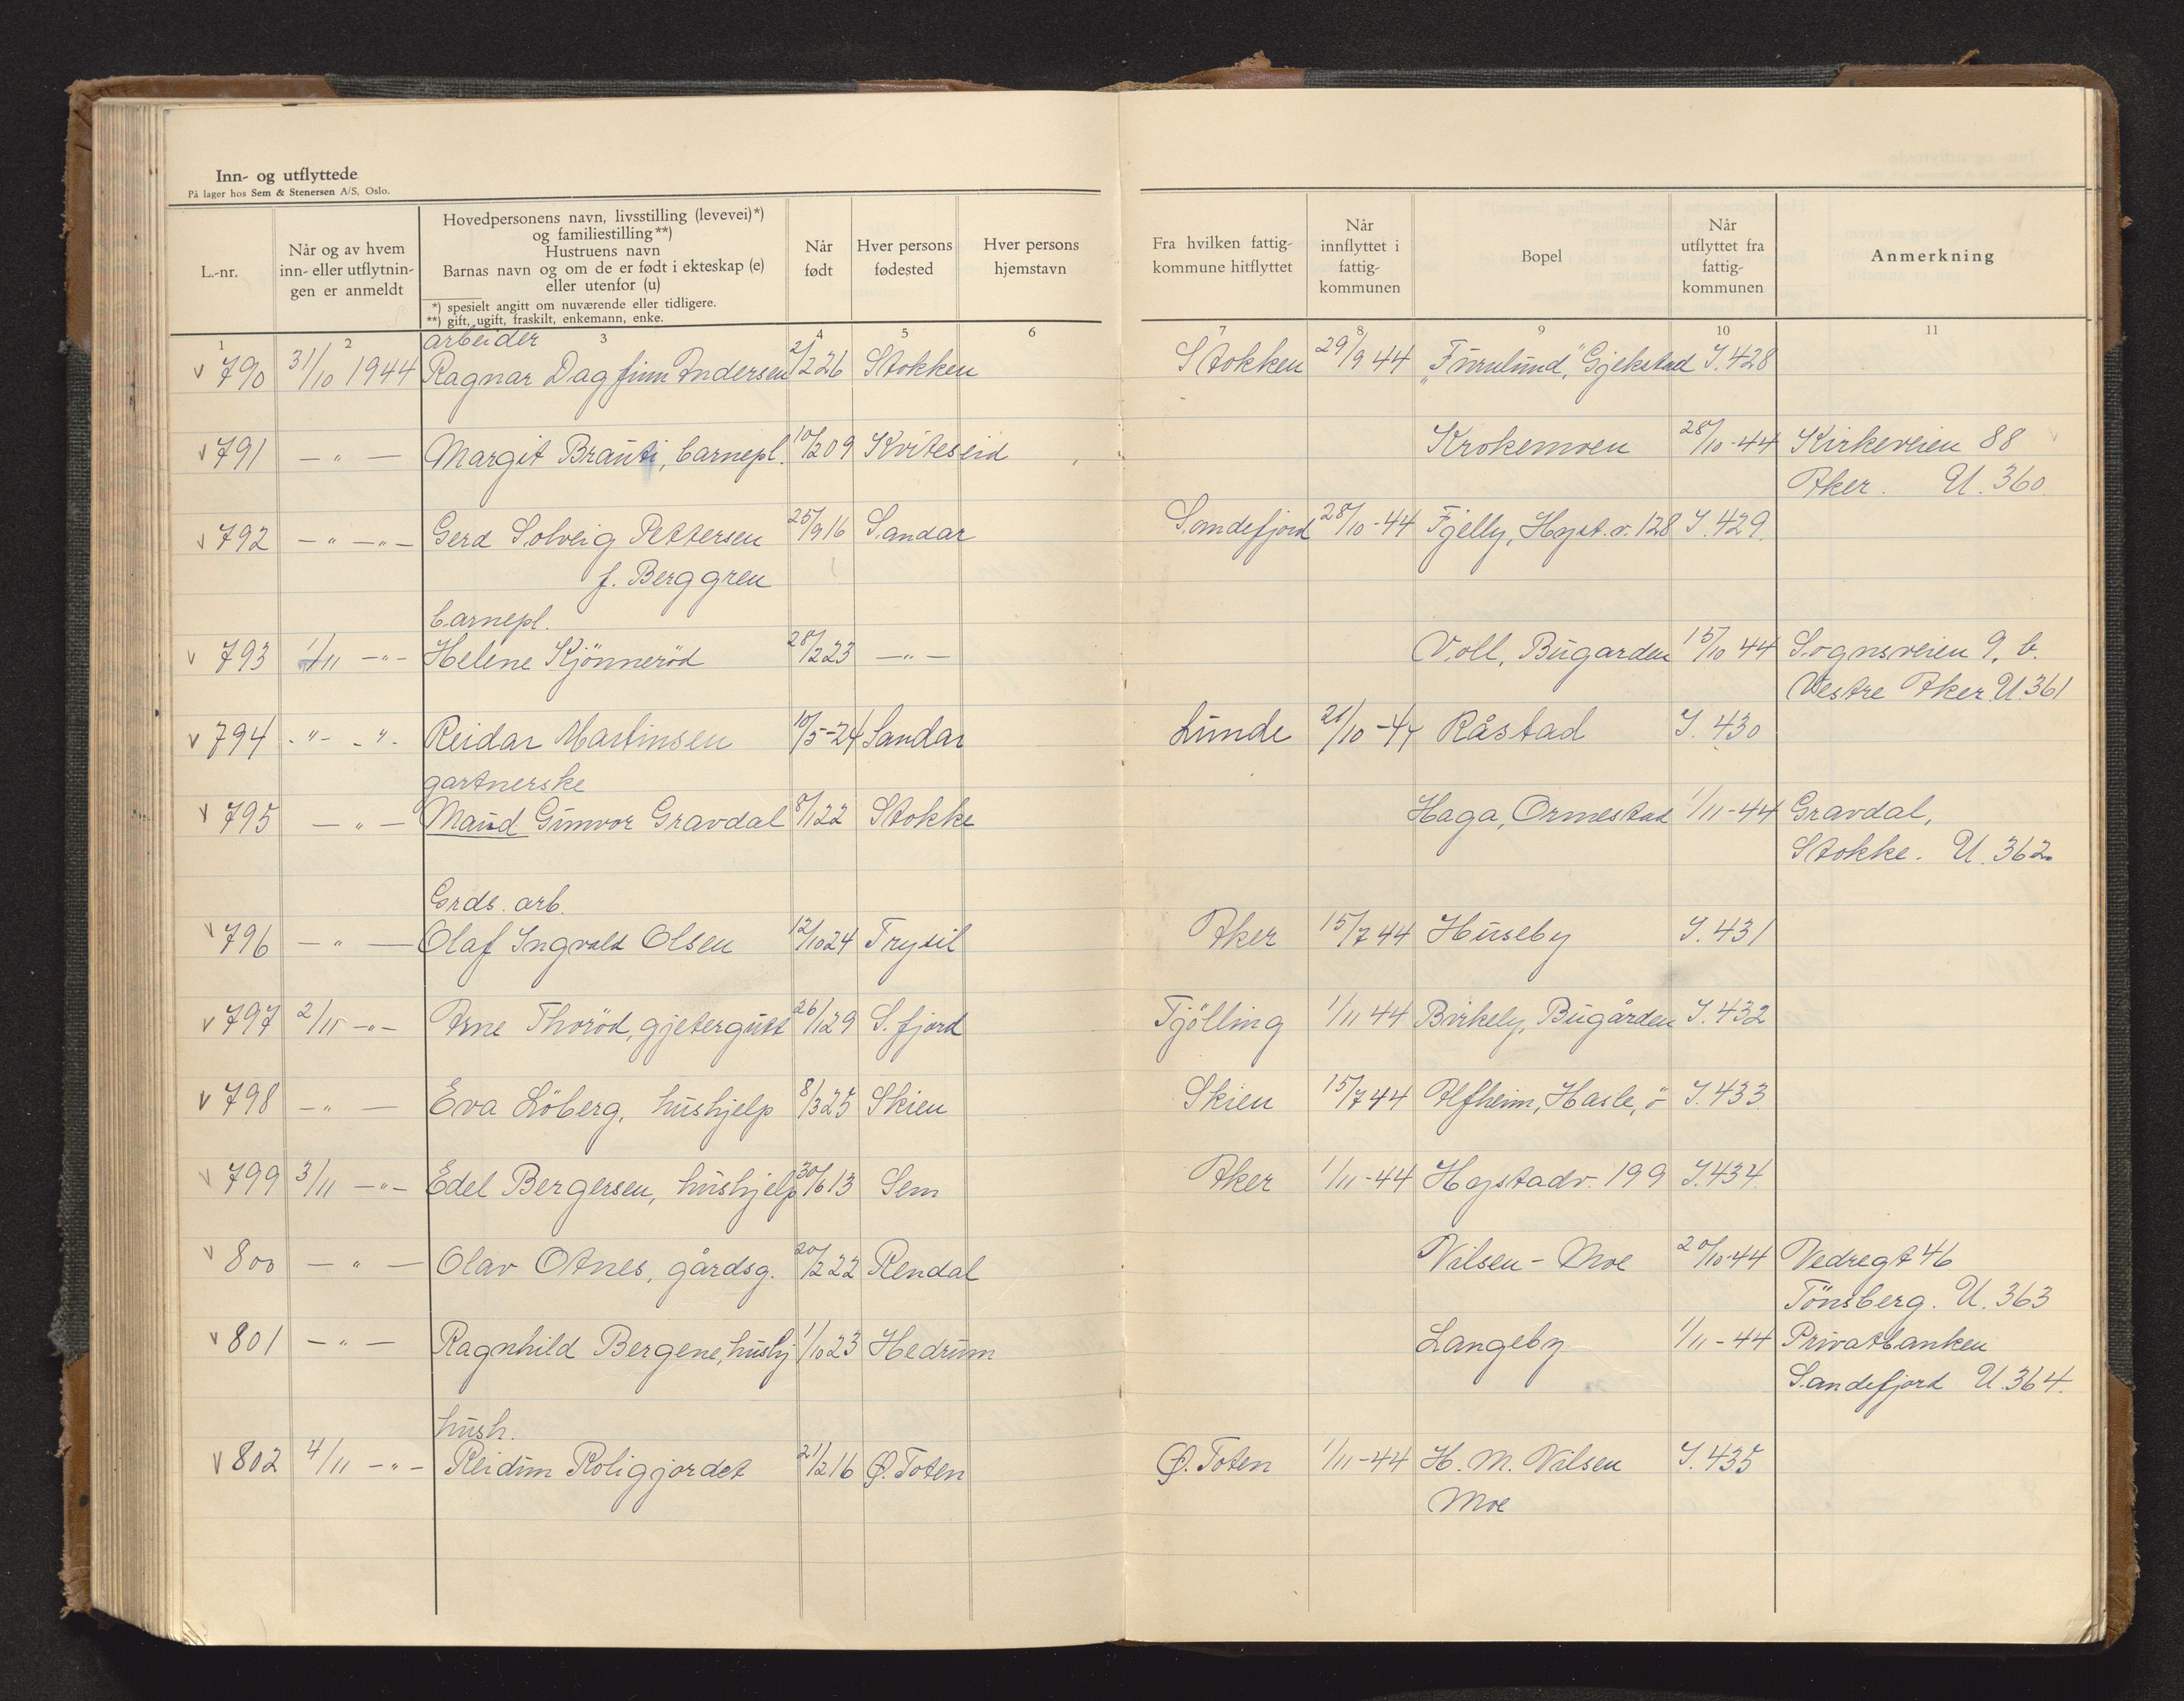 Inn- og utflyttede
På lager hos Sem & Stenersen A/S, Oslo.
L.-nr.
Når og av hvem
inn- eller utflytnin-
gen er anmeldt
Hovedpersonens navn, livsstilling (levevei)*)
og familiestilling**)
Hustruens navn
Barnas navn og om de er født i ekteskap (e)
eller utenfor (u)
*) spesielt angitt om nuværende eller tidligere.
**) gift, ugift, fraskilt, enkemann, enke.
Når
født
Hver persons
fødested
Hver persons
hjemstavn
Fra hvilken fattig-
kommune hitflyttet
Når
innflyttet i
fattig-
kommunen
Bopel
Når
utflyttet fra
fattig-
kommunen
Anmerkning
1 2 3 4 5 6 7 8 9 10 11
arbeider
v 790 31/10 1944 Ragnar Dagfinn Andersen 2/2 26 Stokken Stokken 29/9 44 "Furulund," Gjekstad I. 428
v 791 — " — Margit Brauti, barnepl. 10/2 09 Kviteseid Krokemoen 28/10-44 Kirkeveien 88
Aker. U. 360
v 792 — " — " — Gerd Solveig Pettersen 25/9 16 Sandar Sandefjord 28/10-44 Fjelly, Hyst.v. 128 I. 429.
f. Berggren
barnepl.
v 793 1/11 — " — Helene Kjönnerød 28/2 23 — " — Voll, Bugarden 15/10 44 Sognsveien 9. b.
Vestre Aker U. 361
v 794 - " - - " - Reidar Martinsen 10/5-24 Sandar Lunde 21/10-44 Råstad I. 430
gartnerske
v 795 — " — Maud Gunvor Gravdal 8/1 22 Stokke Haga, Ormestad 1/11-44 Gravdal,
Stokke. U. 362
Grds. arb.
v 796 — " — Olaf Ingvald Olsen 12/10 24 Trysil Aker 15/7 44 Huseby I. 431
v 797 2/11 — " — Arne Thorød, gjetergutt 26/1 29 S. fjord Tjölling 1/11 44 Birkely, Bugården I. 432
v 798 — " — Eva Löberg, hushjelp 8/3 25 Skien Skien 15/7 44 Alfheim, Hasle, ö I. 433
v 799 3/11 — " — Edel Bergersen, hushjelp 30/6 13 Sem Aker 1/11-44 Hystadv. 199 I. 434.
v 800 — " — Olav Otnes, gårdsg. 20/2 22 Rendal Nilsen - Moe 20/10-44 Nedregt 46
Tönsberg. U. 363
v 801 — " — Ragnhild Bergene, hushj 1/10 23 Hedrum Langeby 1/11-44 Privatbanken
Sandefjord U. 364.
hush.
v 802 4/11 — " — Reidun Roligjordet 21/2 16 Ø. Toten Ø. Toten 1/11-44 H. M. Nilsen I. 435
Moe